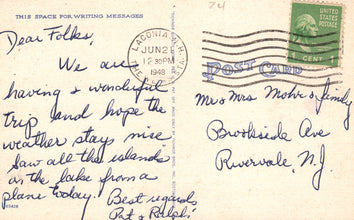 THIS SPACE FOR WRITING MESSAGES
Dear Folks,
We are
having a wonderful
trip and hope the
weather stay nice
Saw all the islands
in the lake from a
plane today.
Best regards
Pat & Ralph.
24
LACONIA, N.H.
JUN 26
12 30 PM
1948
UNITED STATES
POSTAGE
1 CENT
POST CARD
Mr & Mrs Mohr & family
Brookside Ave
Rivervale, N.J